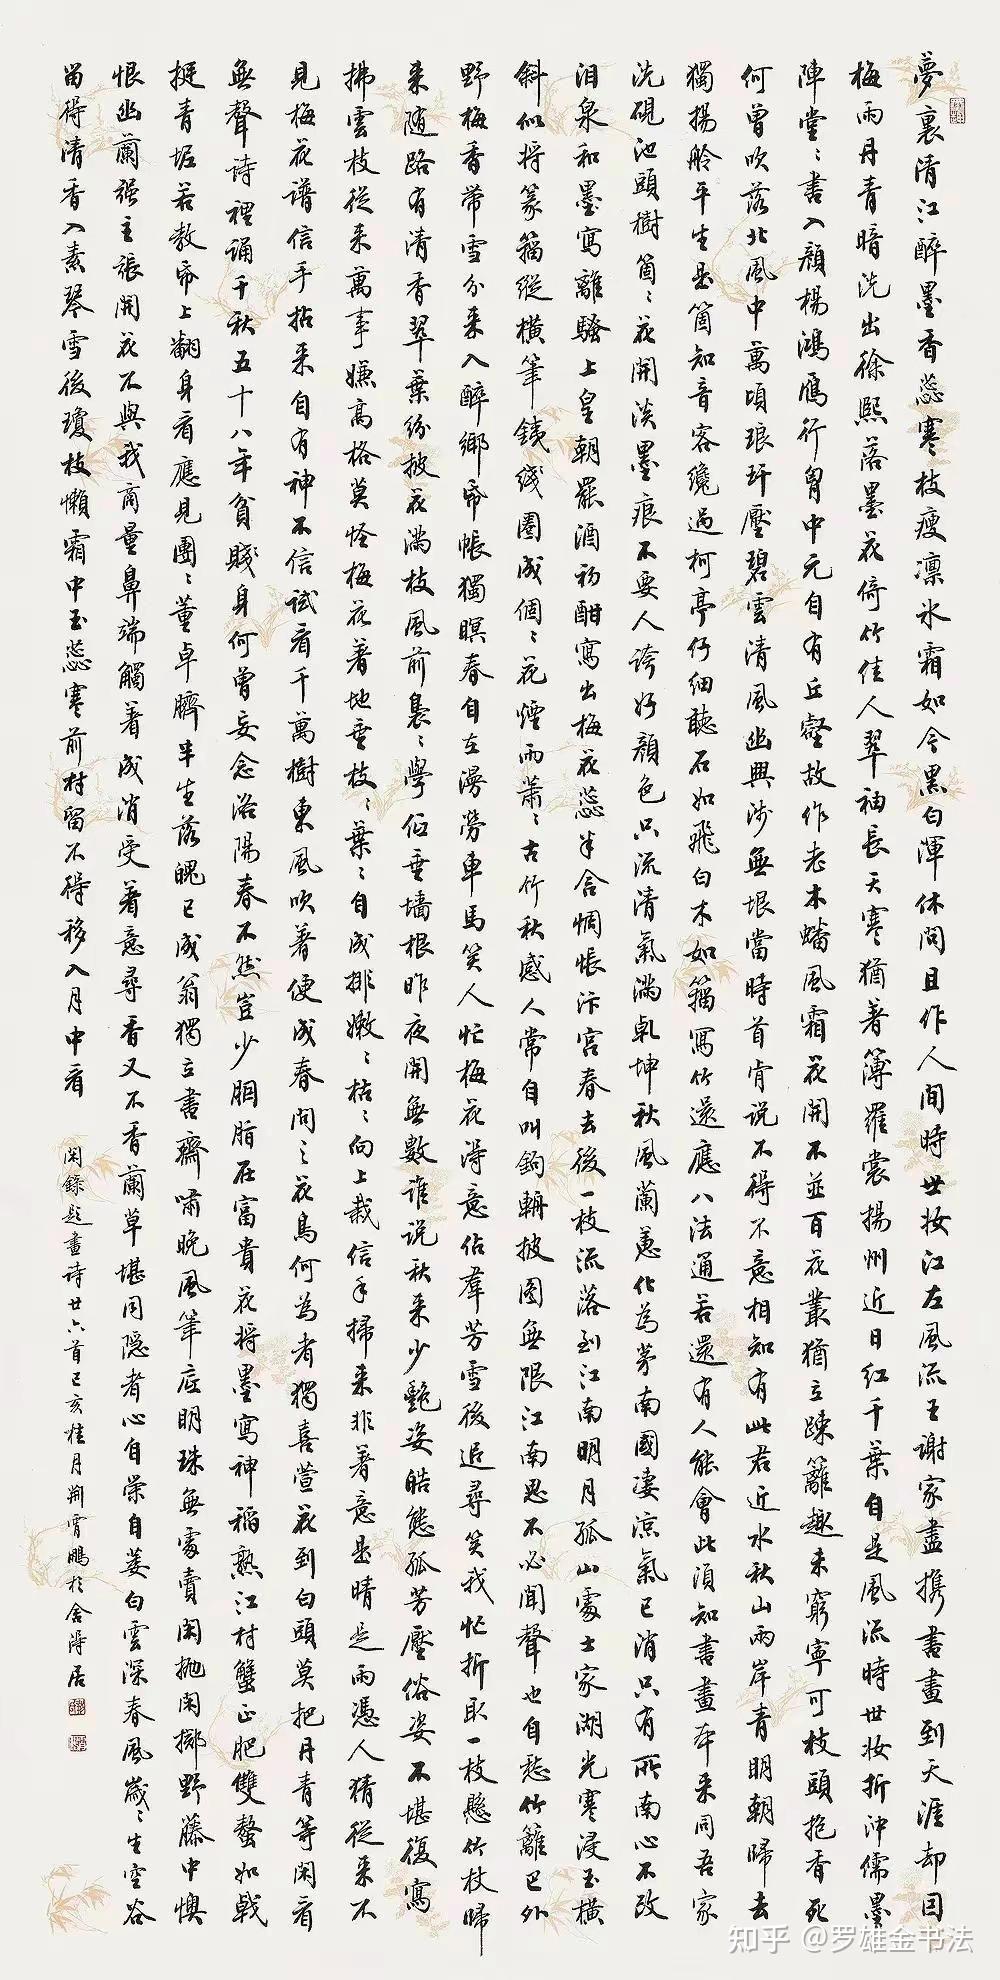 夢裏清江醉墨香蕊寒枝瘦凛冰霜如今黑白渾休問且作人間時世妆江左風流王謝家盡携書畫到天涯却因
梅雨丹青暗洗出徐熙落墨花倚竹佳人翠袖長天寒猶著薄羅裳揚州近日红千葉自是風流時世妆折沖儒墨
陣堂〻書入顔楊鴻雁行胷中元自有丘壑故作老木蟠風霜花開不並百花叢獨立踈籬趣未窮寧可枝頭抱香死
何曾吹落北風中萬頃琅玕壓碧雲清風幽興渺無垠當時首肯说不得不意相知有此君近水秋山兩岸青明朝歸去
獨揚舲平生是箇知音客纔過柯亭仔細聽石如飛白木如籀寫竹還應八法通若還有人能會此須知書畫本来同吾家
洗硯池頭樹箇〻花開淡墨痕不要人誇好顔色只流清氣满乾坤秋風蘭蕙化為茅南國凄涼氣已消只有所南心不改
泪泉和墨寫離騷上皇朝罷酒初酣寫出梅花蕊半含惆悵汴宫春去後一枝流落到江南明月孤山處士家湖光寒浸玉橫
斜似将篆籀縱橫筆鐵线圈成個〻花煙雨蕭〻古竹秋感人常自叫鉤輈披图無限江南思不必聞聲也自愁竹籬巴外
野梅香带雪分来入醉鄉帝帳獨暝春自在漫勞車馬笑人忙梅花得意佔羣芳雪後追尋笑我忙折取一枝懸竹杖歸
来随路有清香翠葉纷披花满枝風前裊〻學低垂墙根昨夜開無數谁说秋来少艷姿皓態孤芳壓俗姿不堪復寫
拂雲枝從来萬事嫌高格莫怪梅花著地垂枝〻葉〻自成排嫩〻枯〻向上栽信手掃来非著意是晴是雨憑人猜從来不
見梅花譜信手拈来自有神不信試看千萬樹東風吹著便成春问〻花鳥何為者獨喜萱花到白頭莫把丹青等闲看
無聲诗裡誦千秋五十八年貧賤身何曾妄念洛陽春不然豈少胭脂在富貴花将墨寫神稻熟江村蟹正肥雙螯如戟
挺青垢若教帋上翻身看應見團〻董卓臍半生落魄已成翁獨立書齋啸晚風筆底明珠無處賣闲抛闲擲野藤中懊
恨幽蘭强主張開花不與我商量鼻端觸著成消受著意尋香又不香蘭草堪同隱者心自榮自萎白雲深春風歲〻生空谷
留得清香入素琴雪後瓊枝懶霜中玉蕊寒前村留不得移入月中看
闲錄题畫诗廿六首己亥桂月荆霄鵬於舍得居
知乎 @罗雄金书法